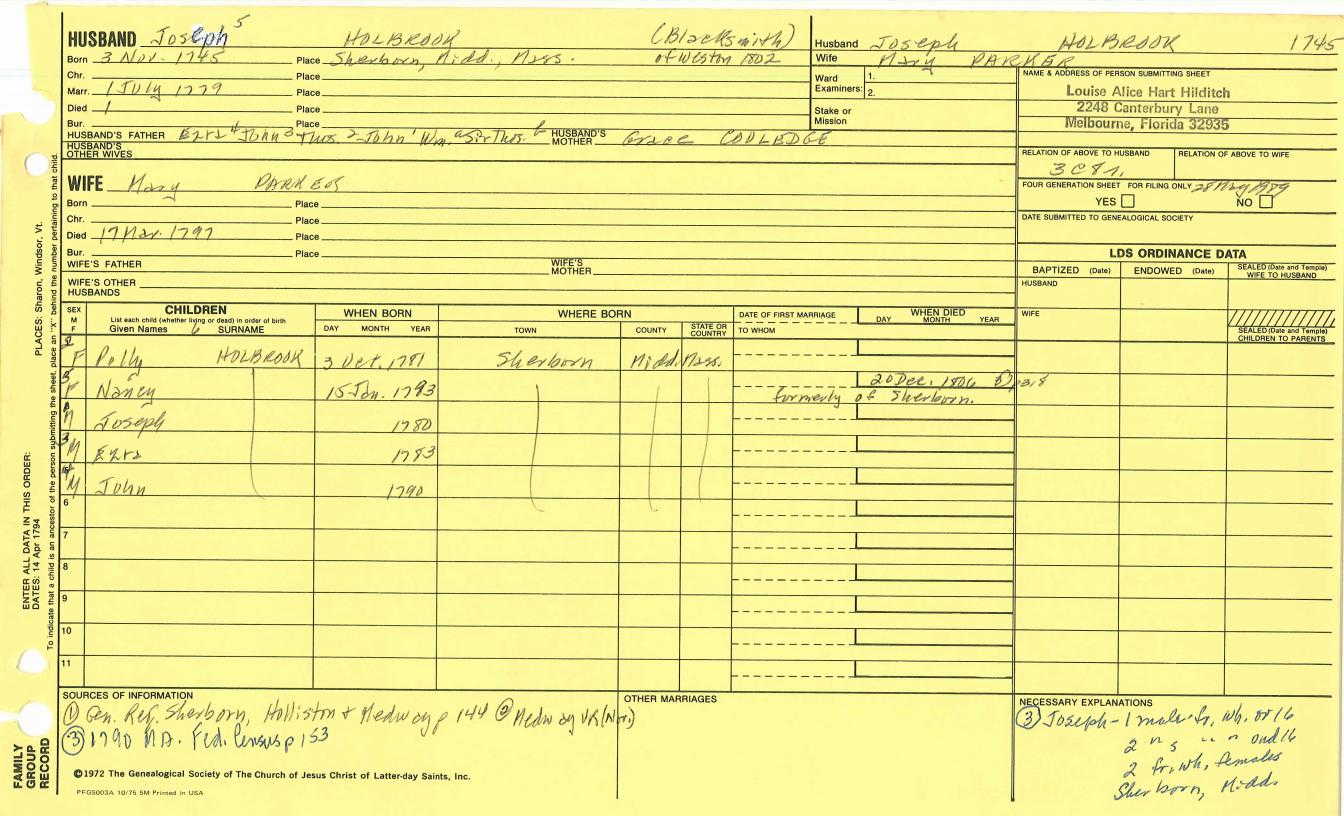 HUSBAND Joseph 5 HOLBROOK (Blacksmith)
Born 3 Nov. 1745 Place Sherborn, Midd., Mass. of Weston 1802
Chr. Place
Marr. 1 July 1779 Place
Died 1 Place
Bur. Place
HUSBAND'S FATHER Ezra 4 John 3 Thos. 2 John 1 Wm. a Sir Thos. b HUSBAND'S MOTHER Grace COOLEDGE
HUSBAND'S OTHER WIVES
WIFE Mary PARKER
Born Place
Chr. Place
Died 17 Mar. 1797 Place
Bur. Place
WIFE'S FATHER WIFE'S MOTHER
WIFE'S OTHER HUSBANDS
Husband Joseph HOLBROOK 1745
Wife Mary PARKER
Ward Examiners: 1.
2.
Stake or Mission
NAME & ADDRESS OF PERSON SUBMITTING SHEET
Louise Alice Hart Hilditch
2248 Canterbury Lane
Melbourne, Florida 32935
RELATION OF ABOVE TO HUSBAND RELATION OF ABOVE TO WIFE
3C
FOUR GENERATION SHEET FOR FILING ONLY 28 May 1989
YES NO
DATE SUBMITTED TO GENEALOGICAL SOCIETY
LDS ORDINANCE DATA
BAPTIZED (Date) ENDOWED (Date) SEALED (Date and Temple) WIFE TO HUSBAND
HUSBAND
WIFE
SEALED (Date and Temple) CHILDREN TO PARENTS
SEX M F
CHILDREN
List each child (whether living or dead) in order of birth
Given Names 6 SURNAME
WHEN BORN
DAY MONTH YEAR
WHERE BORN
TOWN COUNTY STATE OR COUNTRY
DATE OF FIRST MARRIAGE
TO WHOM
WHEN DIED
DAY MONTH YEAR
2 F Polly HOLBROOK 3 Oct. 1781 Sherborn Midd. Mass.
5 F Nancy 15 Jan. 1793 20 Dec. 1806
formerly of Sherborn.
1 M Joseph 1780
3 M Ezra 1783
4 M John 1790
6
7
8
9
10
11
SOURCES OF INFORMATION
① Gen. Reg. Sherborn, Holliston & Medway p 144 ② Medway VR
③ 1790 MA. Fed. Census p 153
OTHER MARRIAGES
NECESSARY EXPLANATIONS
③ Joseph - 1 male fr. wh. or 16
2 " s " " und 16
2 fr. wh. females
Sherborn, Midd.
©1972 The Genealogical Society of The Church of Jesus Christ of Latter-day Saints, Inc.
PFGS003A 10/75 5M Printed in USA
FAMILY GROUP RECORD
ENTER ALL DATA IN THIS ORDER:
DATES: 14 Apr 1794
PLACES: Sharon, Windsor, Vt.
To indicate that a child is an ancestor of the person submitting the sheet, place an "X" behind the number pertaining to that child.